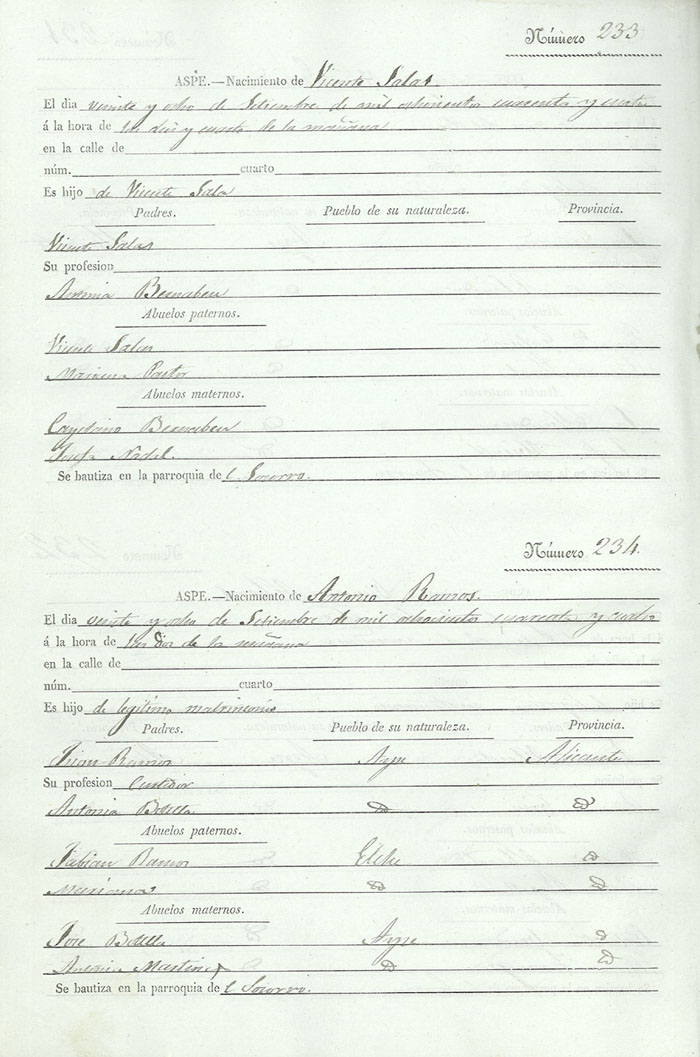 Número 233
ASPE.—Nacimiento de Vicente Salas
El dia veinte y ocho de Setiembre de mil ochocientos cuarenta y cuatro
á la hora de las diez y cuarto de la mañana
en la calle de
núm. cuarto
Es hijo de Vicente Sala
Padres. Pueblo de su naturaleza. Provincia.
Vicente Salas
Su profesion
Antonia Bernabeu
Abuelos paternos.
Vicente Salas
Mariana Pastor
Abuelos maternos.
Cayetano Bernabeu
Josefa Nadal.
Se bautiza en la parroquia de l Socorro.
Número 234.
ASPE.—Nacimiento de Antonio Ramos.
El dia veinte y ocho de Setiembre de mil ochocientos cuarenta y cuatro
á la hora de las dos de la mañana
en la calle de
núm. cuarto
Es hijo de legítimo matrimonio
Padres. Pueblo de su naturaleza. Provincia.
Juan Ramos Aspe Alicante
Su profesion
Antonia Botella
Abuelos paternos.
Fabian Ramos Elche
Mariana
Abuelos maternos.
Jose Botella Aspe
Antonia Martinez
Se bautiza en la parroquia de l Socorro.